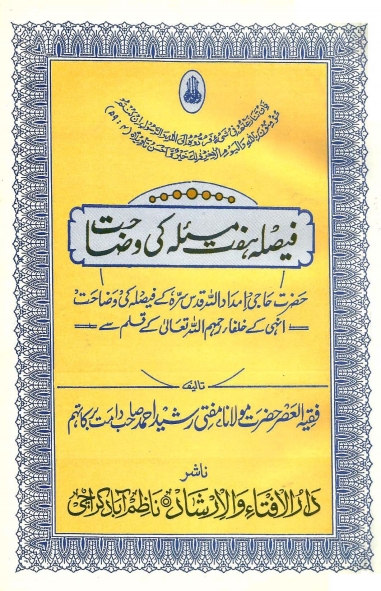 فَاِنْ تَنَازَعْتُمْ فِیْ شَیْءٍ فَرُدُّوْهُ اِلَی اللّٰہِ وَالرَّسُوْلِ اِنْ کُنْتُمْ
تُؤْمِنُوْنَ بِاللّٰہِ وَالْیَوْمِ الْاٰخِرِ ذٰلِکَ خَیْرٌ وَّاَحْسَنُ تَاْوِیْلًا (۴ : ۵۹)
فیصلہ ہفت مسئلہ کی وضاحت
حضرت حاجی امداد اللہ قدس سرہ کے فیصلہ کی وضاحت
انہی کے خلفاء رحمہم اللہ تعالیٰ کے قلم سے
تالیف
فقیہ العصر حضرت مولانا مفتی رشید احمد صاحب دامت برکاتہم
ناشر
دار الافتاء والارشاد ناظم آباد کراچی